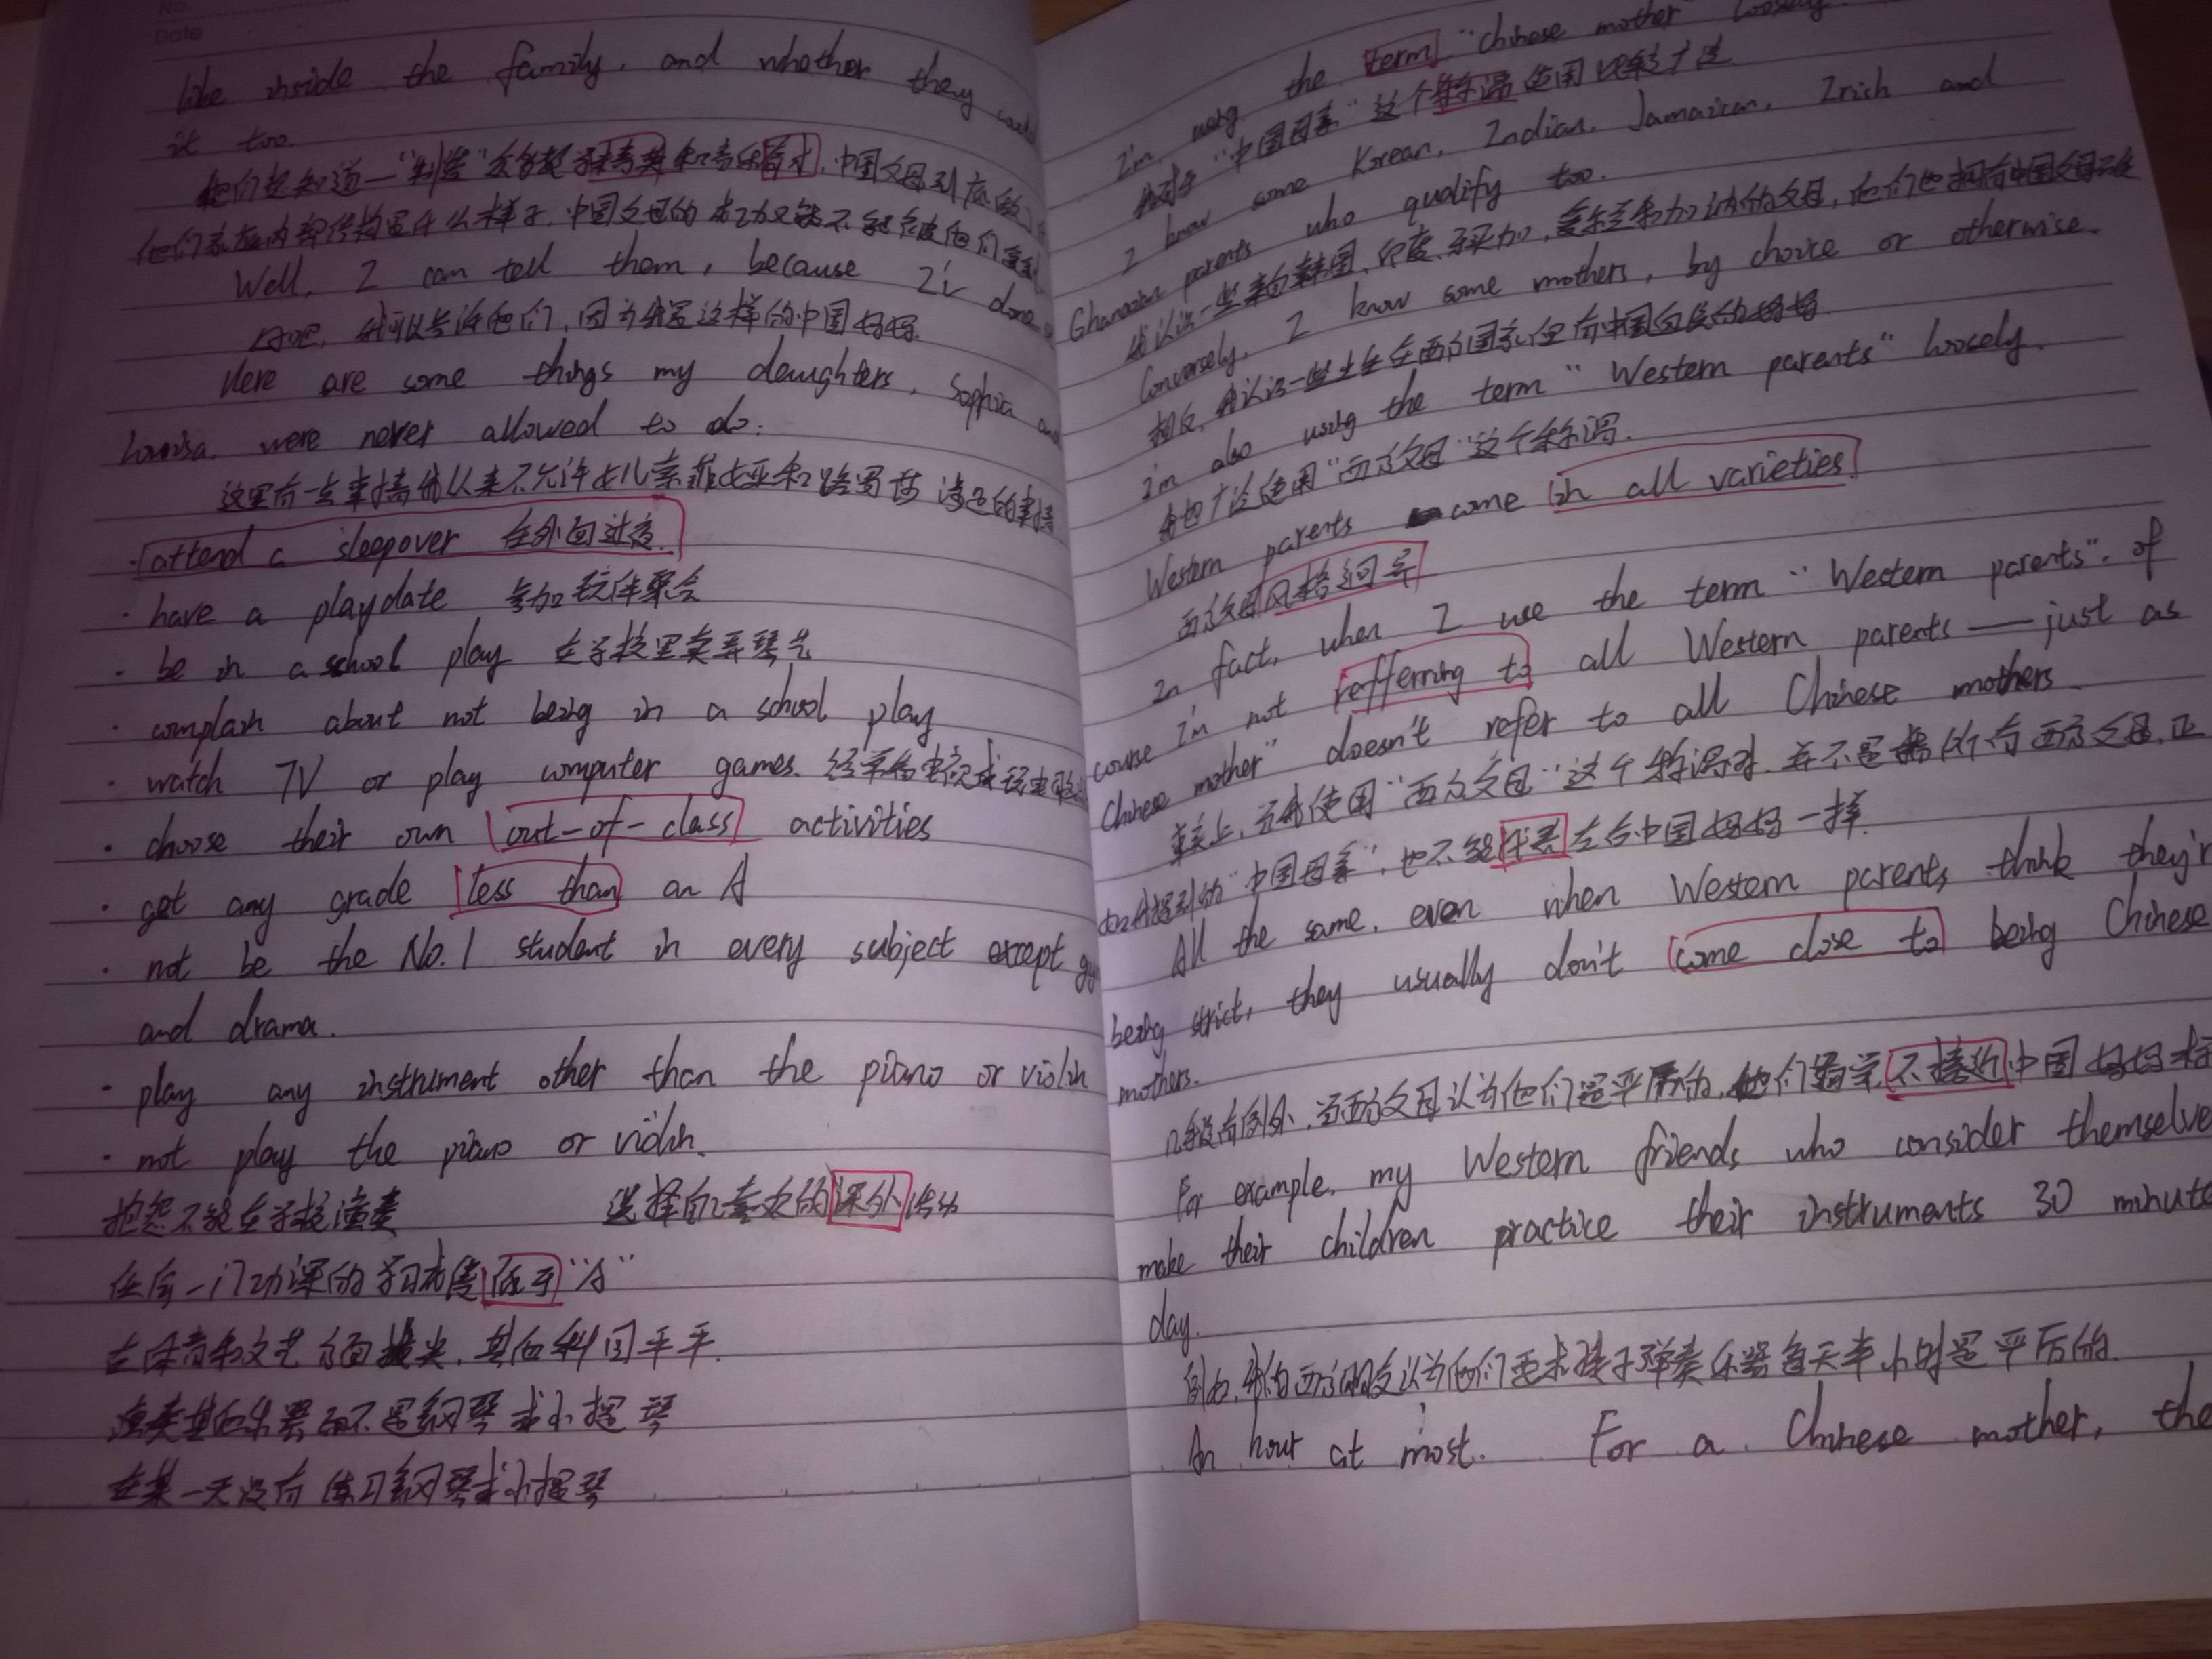 No.
Date
like inside the family, and whether they could
it too.
Well, I can tell them, because I'v done
好吧, 我可以告诉他们, 因为我是这样的中国妈妈.
Here are some things my daughters, Sophia and
Louisa, were never allowed to do:
这里有一些事情我从来不允许女儿索菲娅和路易莎
· attend a sleepover 在外面过夜.
· have a playdate 参加玩伴聚会
· be in a school play 在学校里卖弄琴艺
· complain about not being in a school play
· watch TV or play computer games.
· choose their own out-of-class activities
· get any grade less than an A
· not be the No.1 student in every subject except
and drama.
· play any instrument other than the piano or violin
· not play the piano or violin.
抱怨不能在学校演奏 选择自己喜欢的课外活动
任何一门功课的学习成绩低于"A"
在体育和文艺方面拔尖, 其他科目平平.
演奏其他乐器而不是钢琴或小提琴
在某一天没有练习钢琴或小提琴
I'm using the term "Chinese mother" loosely.
"中国母亲"这个称谓使用比较广泛
I know some Korean, Indian, Jamaican, Irish and
Ghanaian parents who qualify too.
我认识一些来自韩国, 印度, 牙买加, 爱尔兰和加纳的父母, 他们也拥有中国父母
Conversely, I know some mothers, by choice or otherwise.
相反, 我认识一些出生在西方国家但有中国血统的妈妈.
I'm also using the term "Western parents" loosely.
我也广泛使用"西方父母"这个称谓.
Western parents come in all varieties
西方父母风格迥异
In fact, when I use the term "Western parents". of
course I'm not refferring to all Western parents — just as
Chinese mother" doesn't refer to all Chinese mothers.
事实上, 当我使用"西方父母"这个称谓时, 并不是指所有西方父母, 正
如我提到的"中国母亲", 也不能代表所有中国妈妈一样.
All the same, even when Western parents think they'r
being strict, they usually don't come close to being Chinese
mothers.
几乎没有例外, 当西方父母认为他们是严厉的, 他们通常不接近中国妈妈
For example, my Western friends who consider themselve
make their children practice their instruments 30 minute
day.
例如, 我的西方朋友认为他们要求孩子弹奏乐器每天半小时是严厉的.
An hour at most. For a Chinese mother, the